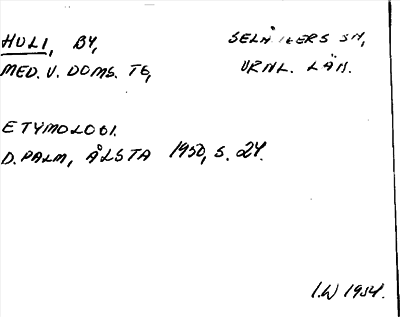 HULI, BY, SELÅNGERS SN,
MED. V. DOMS. TG, VRNL. LÄN.
ETYMOLOGI.
D. PALM, ÅLSTA 1950, S. 24.
I.W 1954.